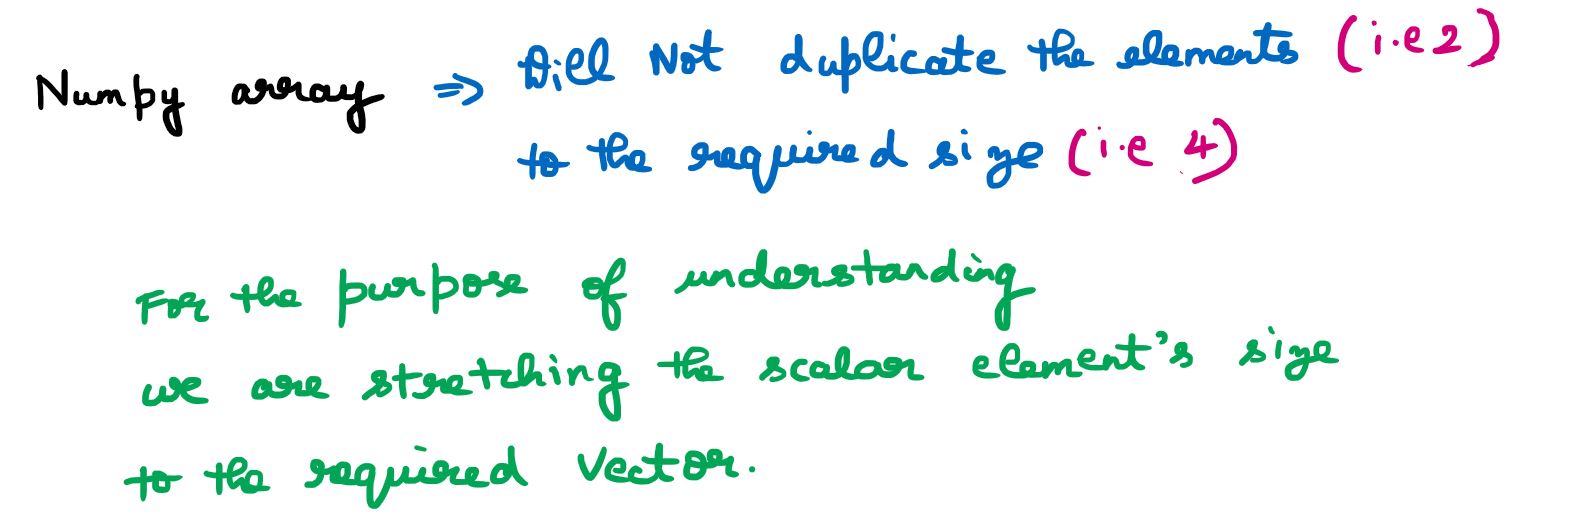 Numpy array ⇒ Will Not duplicate the elements (i.e 2)
to the required size (i.e 4)
For the purpose of understanding
we are stretching the scalar element's size
to the required vector.